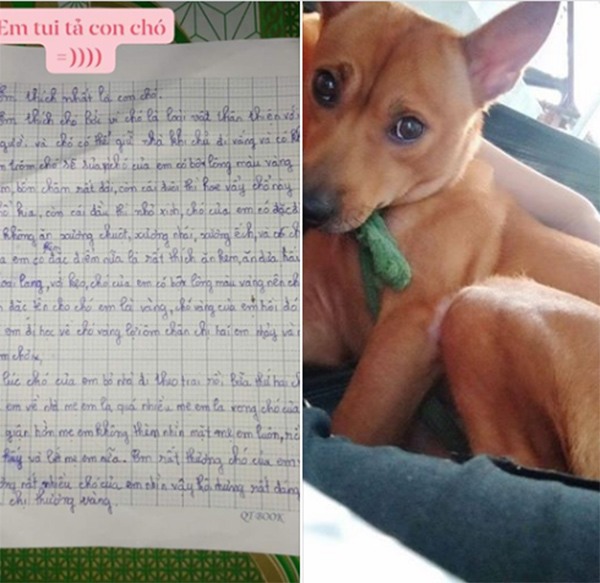 Em tui tả con chó
=))))
Em thích nhất là con chó.
thích chó bởi vì chó là loài vật thân thiện với
người. và chó có thể giữ nhà khi chủ đi vắng và có
trộm chó sẽ sủa chó của em có bộ lông màu vàng
bốn chân rất dài, còn cái đuôi thì hoe vẩy chổ này
kia, còn cái đầu thì nhỏ xinh, chó của em có đặc
không ăn xương chuột, xương nhái, xương ếch, và
em có đặc điểm nữa là rất thích ăn kem, ăn dưa hấu
lang, vỏ kẹo, chó của em có bộ lông màu vàng nên
đặc tên cho chó em là vàng, chó vàng của em
em đi học về chó vàng lại ôm chân chị hai em nhảy và
lúc chó của em bỏ nhà đi theo trai rồi, bữa thứ hai
em về nhà mẹ em la quá nhiều mẹ em la xong chó của
giận hờn mẹ em không thèm nhìn mặt mẹ em luôn,
và mẹ em nữa. Em rất thương chó của em
rất nhiều chó của em nhìn vậy
chị thương vàng.
QT-BOOK